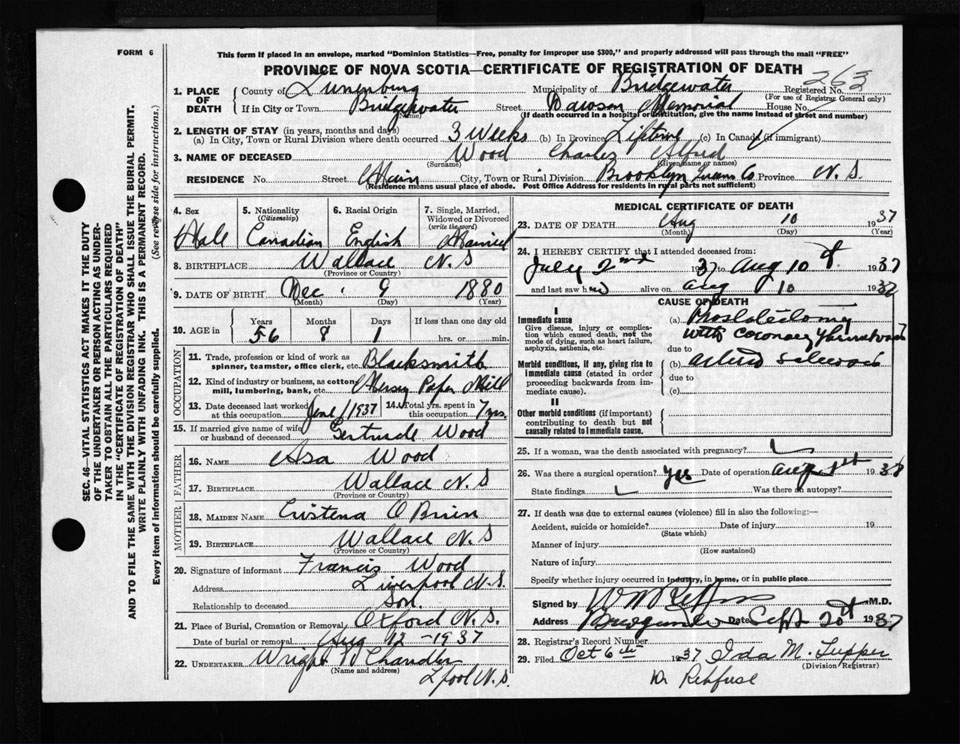 FORM 6
This form if placed in an envelope, marked "Dominion Statistics—Free, penalty for improper use $300," and properly addressed will pass through the mail "FREE"
PROVINCE OF NOVA SCOTIA—CERTIFICATE OF REGISTRATION OF DEATH
263
1. PLACE OF DEATH County of Lunenburg Municipality of Bridgewater Registered No.
(For use of Registrar General only)
If in City or Town Bridgewater Street Dawson Memorial House No.
(Name) (If death occurred in a hospital or institution, give the name instead of street and number)
2. LENGTH OF STAY (in years, months and days)
(a) In City, Town or Rural Division where death occurred 3 Weeks (b) In Province Lifetime (c) In Canada (if immigrant)
3. NAME OF DECEASED Wood Charles Alfred
(Surname) (Given name or names)
RESIDENCE No. Street Main City, Town or Rural Division Brooklyn Queens Co Province N.S.
(Residence means usual place of abode. Post Office Address for residents in rural parts not sufficient)
4. Sex 5. Nationality (Citizenship) 6. Racial Origin 7. Single, Married, Widowed or Divorced (write the word)
Male Canadian English Married
8. BIRTHPLACE Wallace N.S
(Province or Country)
9. DATE OF BIRTH Dec. 9 1880
(Month) (Day) (Year)
10. AGE in Years Months Days If less than one day old
56 8 1 hrs. or min.
OCCUPATION
11. Trade, profession or kind of work as spinner, teamster, office clerk, etc. Blacksmith
12. Kind of industry or business, as cotton mill, lumbering, bank, etc. Mersey Paper Mill
13. Date deceased last worked at this occupation June/1937 14. Total yrs. spent in this occupation 7 yrs.
15. If married give name of wife or husband of deceased Gertrude Wood
FATHER
16. Name Asa Wood
17. Birthplace Wallace N.S
(Province or Country)
MOTHER
18. Maiden Name Cristena O'Brien
19. Birthplace Wallace N.S
(Province or Country)
20. Signature of informant Francis Wood
Address Liverpool N.S.
Relationship to deceased Son.
21. Place of Burial, Cremation or Removal Oxford N.S.
Date of burial or removal Aug 12 - 1937
22. UNDERTAKER Wright W Chandler
(Name and address)
L'pool N.S.
MEDICAL CERTIFICATE OF DEATH
23. DATE OF DEATH Aug 10 1937
(Month) (Day) (Year)
24. I HEREBY CERTIFY that I attended deceased from:
July 2nd 1937 to Aug 10th 1937
and last saw h alive on Aug 10 1937
CAUSE OF DEATH
I
Immediate cause
Give disease, injury or complication which caused death, not the mode of dying, such as heart failure, asphyxia, asthenia, etc.
(a) Prostatectomy
with Coronary Thrombosis
due to
Morbid conditions, if any, giving rise to immediate cause (stated in order proceeding backwards from immediate cause).
(b)
due to
(c)
II
Other morbid conditions (if important) contributing to death but not causally related to immediate cause.
25. If a woman, was the death associated with pregnancy?
26. Was there a surgical operation? Yes Date of operation Aug 1st 193
State findings Was there an autopsy?
27. If death was due to external causes (violence) fill in also the following:—
Accident, suicide or homicide? Date of injury 19
(State which)
Manner of injury
(How sustained)
Nature of injury
Specify whether injury occurred in industry, in home, or in public place
Signed by M.D.
Address Bridgewater Date Sept 20th 1937
28. Registrar's Record Number
29. Filed Oct 6th 1937 Ida M. Tupper
(Division Registrar)
D. Rehfuse
SEC. 46—VITAL STATISTICS ACT MAKES IT THE DUTY
OF THE UNDERTAKER OR PERSON ACTING AS UNDER-
TAKER TO OBTAIN ALL THE PARTICULARS REQUIRED
IN THE "CERTIFICATE OF REGISTRATION OF DEATH"
AND TO FILE THE SAME WITH THE DIVISION REGISTRAR WHO SHALL ISSUE THE BURIAL PERMIT.
WRITE PLAINLY WITH UNFADING INK. THIS IS A PERMANENT RECORD.
Every item of information should be carefully supplied. (See reverse side for instructions.)